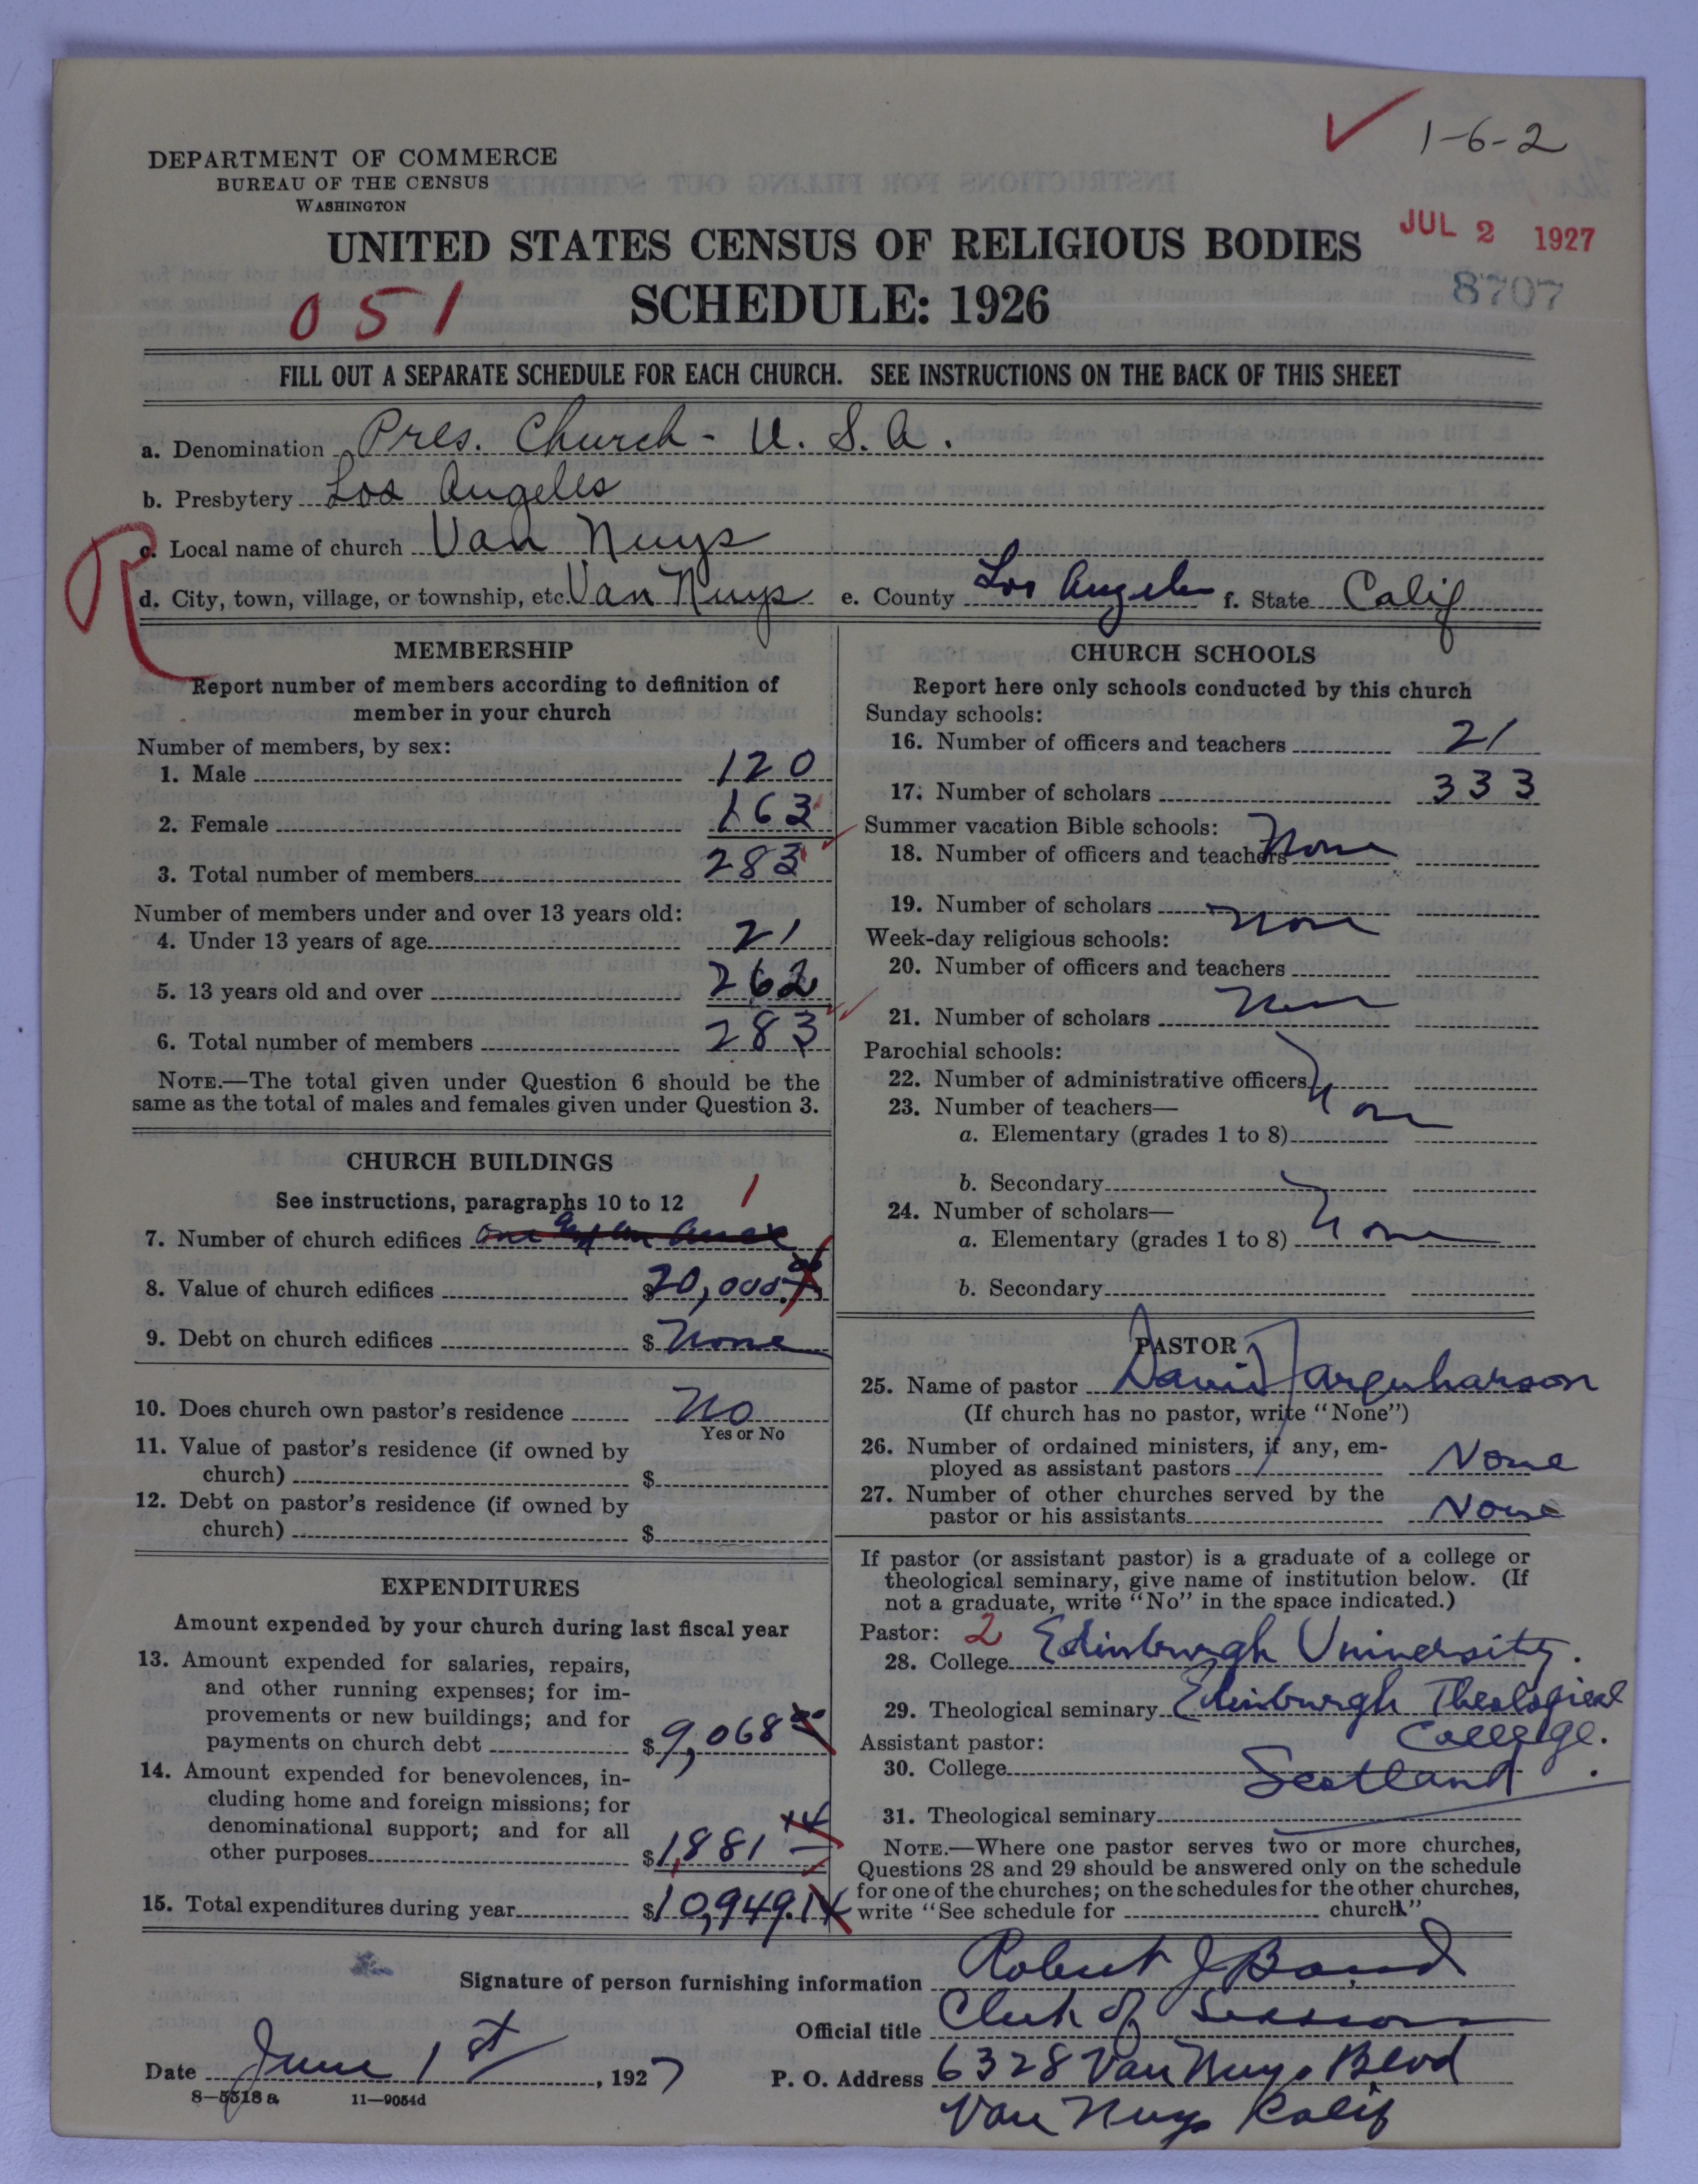 1-6-2
DEPARTMENT OF COMMERCE
BUREAU OF THE CENSUS
WASHINGTON
JUL 2 1927
UNITED STATES CENSUS OF RELIGIOUS BODIES
8707
051
SCHEDULE: 1926
FILL OUT A SEPARATE SCHEDULE FOR EACH CHURCH. SEE INSTRUCTIONS ON THE BACK OF THIS SHEET
a. Denomination Pres. Church - U. S. A.
b. Presbytery Los Angeles
R
c. Local name of church Van Nuys
d. City, town, village, or township, etc. Van Nuys e. County Los Angeles f. State Calif
MEMBERSHIP
Report number of members according to definition of
member in your church
Number of members, by sex:
1. Male 120
2. Female 163
3. Total number of members 283
Number of members under and over 13 years old:
4. Under 13 years of age 21
5. 13 years old and over 262
6. Total number of members 283
NOTE.—The total given under Question 6 should be the
same as the total of males and females given under Question 3.
CHURCH BUILDINGS
See instructions, paragraphs 10 to 12 1
7. Number of church edifices One
8. Value of church edifices $20,000.00
9. Debt on church edifices $ None
10. Does church own pastor's residence No
Yes or No
11. Value of pastor's residence (if owned by
church) $
12. Debt on pastor's residence (if owned by
church) $
EXPENDITURES
Amount expended by your church during last fiscal year
13. Amount expended for salaries, repairs,
and other running expenses; for im-
provements or new buildings; and for
payments on church debt $9,068 00
14. Amount expended for benevolences, in-
cluding home and foreign missions; for
denominational support; and for all
other purposes $1,881 14
15. Total expenditures during year $10,949.14
CHURCH SCHOOLS
Report here only schools conducted by this church
Sunday schools:
16. Number of officers and teachers 21
17. Number of scholars 333
Summer vacation Bible schools:
18. Number of officers and teachers None
19. Number of scholars None
Week-day religious schools:
20. Number of officers and teachers
21. Number of scholars None
Parochial schools:
22. Number of administrative officers
23. Number of teachers— None
a. Elementary (grades 1 to 8)
b. Secondary
24. Number of scholars—
a. Elementary (grades 1 to 8) None
b. Secondary
PASTOR
25. Name of pastor David Farquharson
(If church has no pastor, write "None")
26. Number of ordained ministers, if any, em-
ployed as assistant pastors None
27. Number of other churches served by the
pastor or his assistants None
If pastor (or assistant pastor) is a graduate of a college or
theological seminary, give name of institution below. (If
not a graduate, write "No" in the space indicated.)
Pastor: 2
28. College Edinburgh University.
29. Theological seminary Edinburgh Theological
Assistant pastor: College.
30. College Scotland.
31. Theological seminary
NOTE.—Where one pastor serves two or more churches,
Questions 28 and 29 should be answered only on the schedule
for one of the churches; on the schedules for the other churches,
write "See schedule for church."
Signature of person furnishing information Robert J Bond
Official title Clerk of Session
Date June 1st, 1927 P. O. Address 6328 Van Nuys Blvd
8—5518 a 11—9054d
Van Nuys Calif